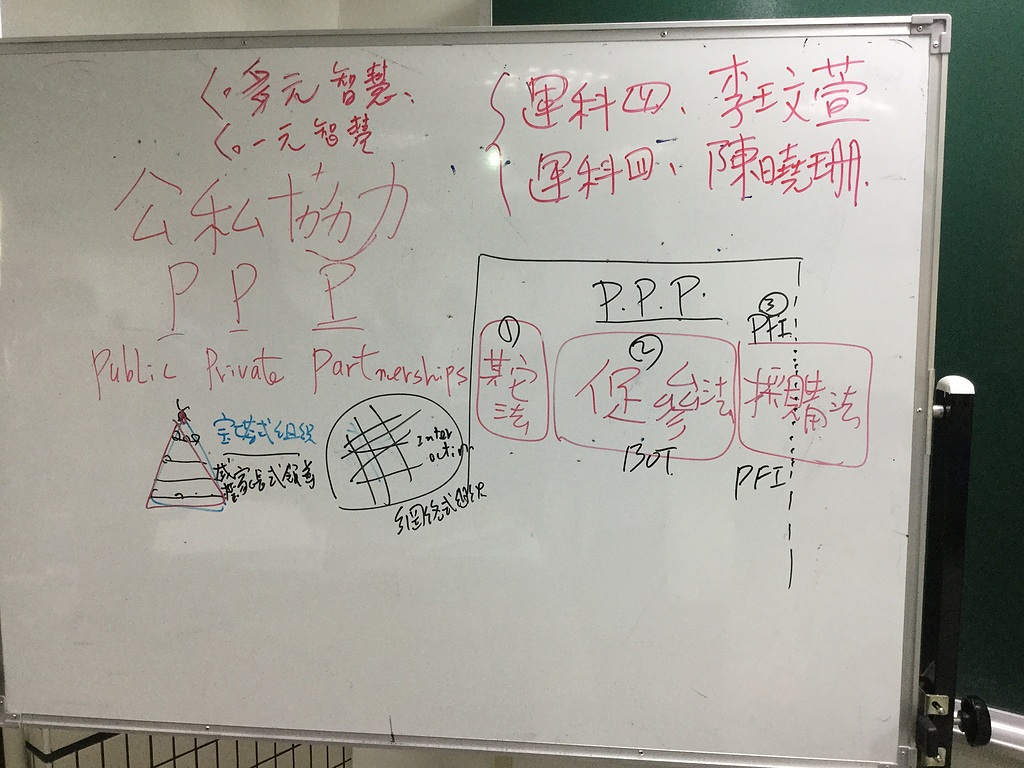 多元智慧、
一元智慧
運科四、李玟萱
運科四、陳曉珊.
公私協力
P P P
Public Private Partnerships
宝塔式組織
威權家長式領導
Inter
action
網絡式組织
P.P.P.
① 其它法
② 促參法
BOT
③ PFI
採購法
PFI